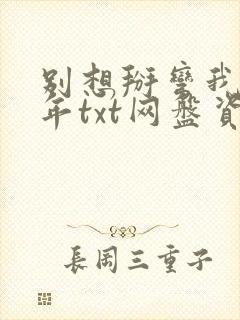 别想掰弯我
年txt网盘资
長岡三重子